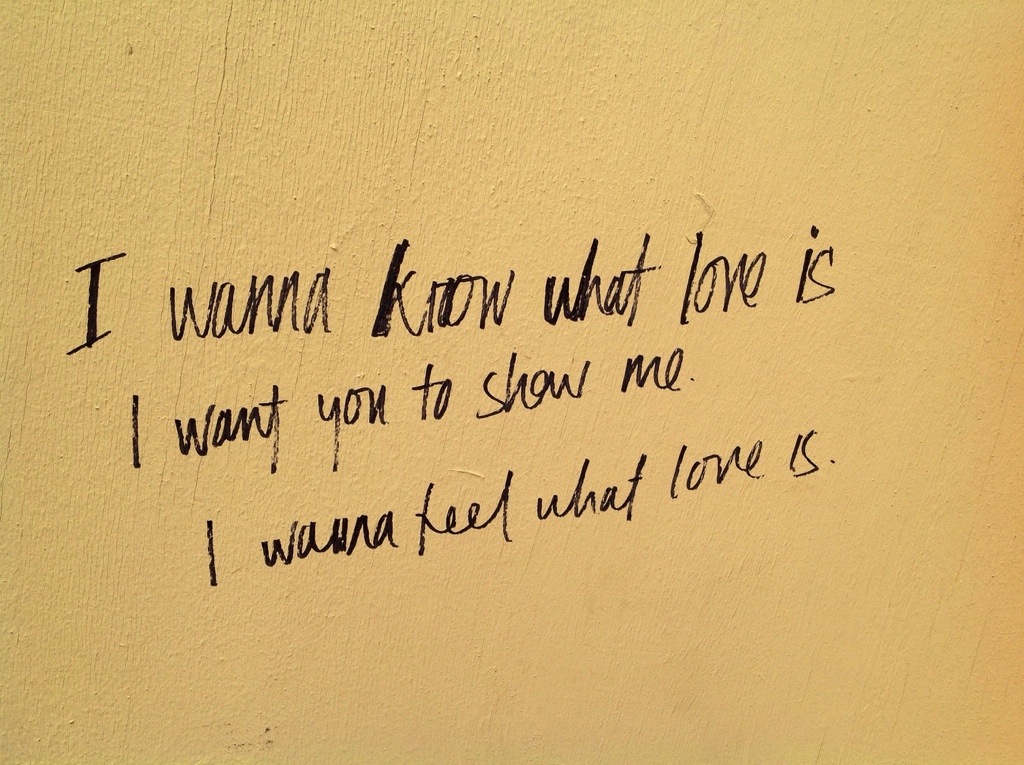 I wanna know what love is
I want you to show me.
I wanna feel what love is.